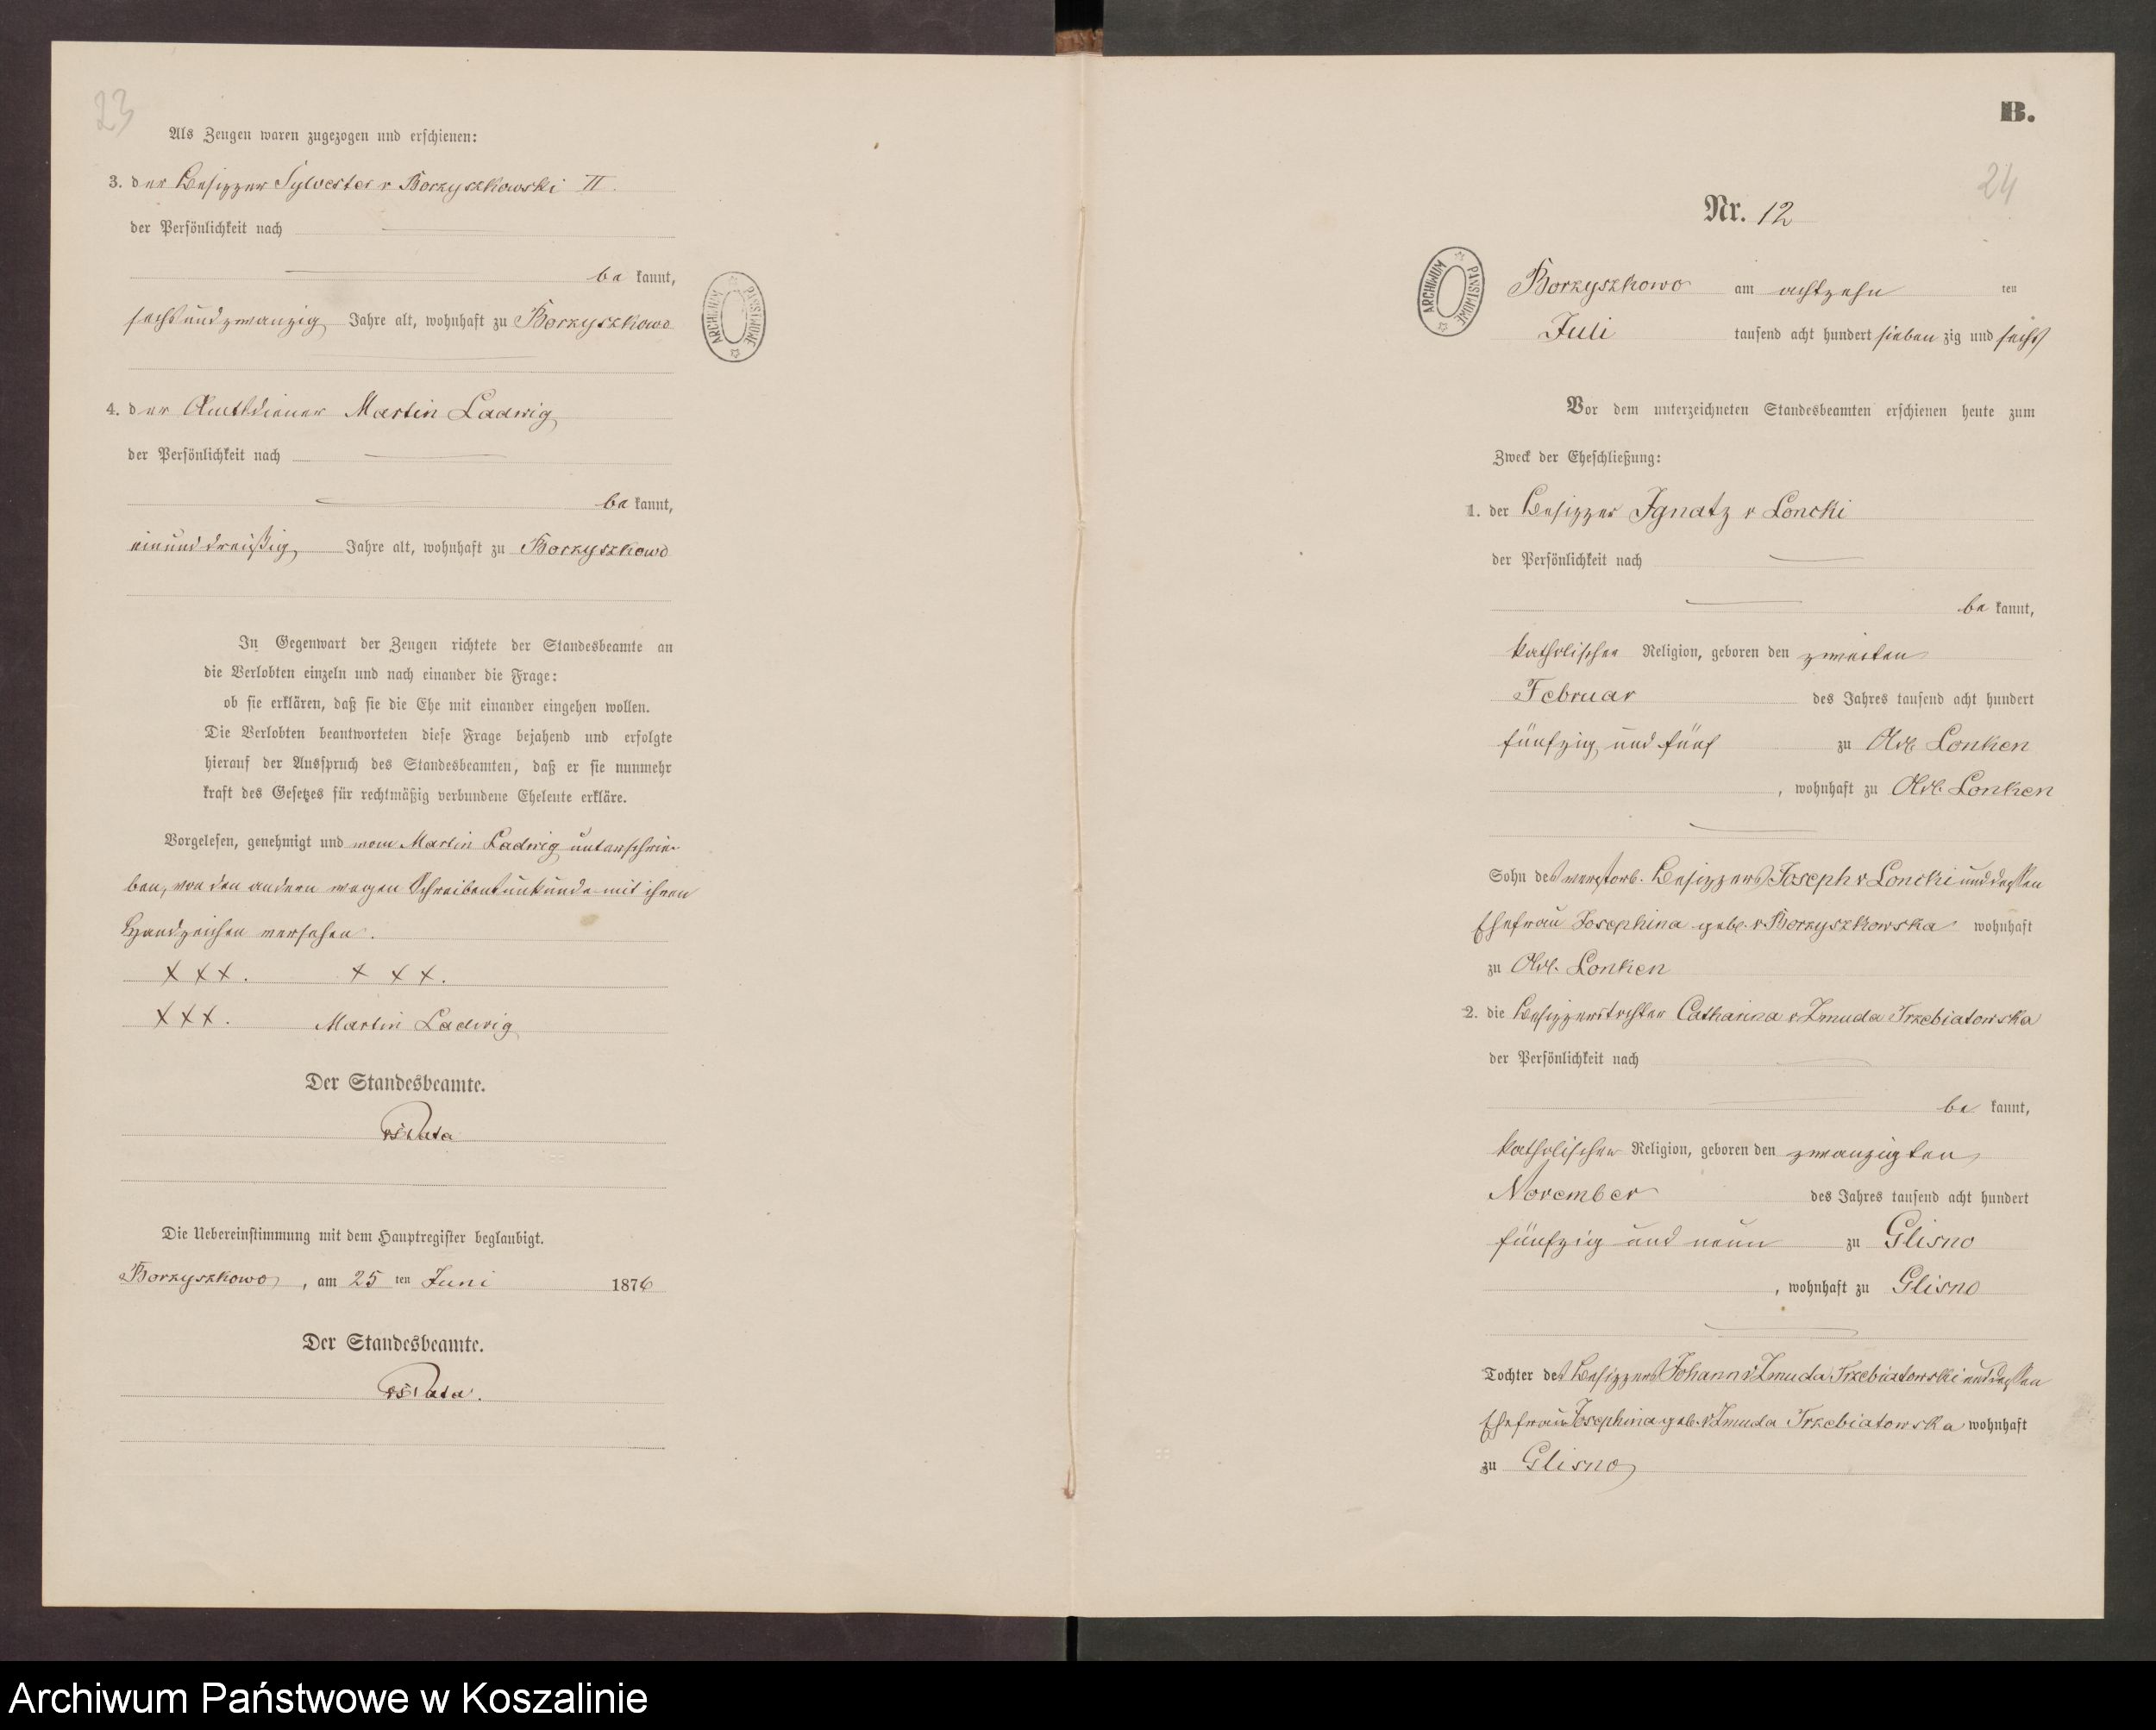 23
Als Zeugen waren zugezogen und erschienen:
3. der Besitzer Sylvester v Borzyszkowski II.
der Persönlichkeit nach
be kannt,
sechsundzwanzig Jahre alt, wohnhaft zu Borzyszkowo
4. der Amtsdiener Martin Ladwig
der Persönlichkeit nach
be kannt,
einunddreißig Jahre alt, wohnhaft zu Borzyszkowo
In Gegenwart der Zeugen richtete der Standesbeamte an
die Verlobten einzeln und nach einander die Frage:
ob sie erklären, daß sie die Ehe mit einander eingehen wollen.
Die Verlobten beantworteten diese Frage bejahend und erfolgte
hierauf der Ausspruch des Standesbeamten, daß er sie nunmehr
kraft des Gesetzes für rechtmäßig verbundene Eheleute erkläre.
Vorgelesen, genehmigt und vom Martin Ladwig unterschrie-
ben, von den andern wegen Schreibensunkunde mit ihren
Handzeichen versehen.
X X X. X X X.
X X X. Martin Ladwig
Der Standesbeamte.
Die Uebereinstimmung mit dem Hauptregister beglaubigt.
Borzyszkowo, am 25 ten Juni 1876
Der Standesbeamte.
ARCHIWUM PAŃSTWOWE
B.
24
Nr. 12
ARCHIWUM PAŃSTWOWE
Borzyszkowo am achtzehn ten
Juli tausend acht hundert sieben zig und sechs
Vor dem unterzeichneten Standesbeamten erschienen heute zum
Zweck der Eheschließung:
1. der Besitzer Ignatz v Loncki
der Persönlichkeit nach
be kannt,
katholischer Religion, geboren den zweiten
Februar des Jahres tausend acht hundert
fünfzig und fünf zu Adl. Lonken
, wohnhaft zu Adl. Lonken
Sohn des verstorb. Besitzers Joseph v Loncki und dessen
Ehefrau Josephina geb. v Borzyszkowska wohnhaft
zu Adl. Lonken
2. die Besitzerstochter Catharina v Zmuda Trzebiatowska
der Persönlichkeit nach
be kannt,
katholischer Religion, geboren den zwanzigten
November des Jahres tausend acht hundert
fünfzig und neun zu Glisno
, wohnhaft zu Glisno
Tochter des Besitzers Johann v Zmuda Trzebiatowski und dessen
Ehefrau Josephina geb. v Zmuda Trzebiatowska wohnhaft
zu Glisno
Archiwum Państwowe w Koszalinie